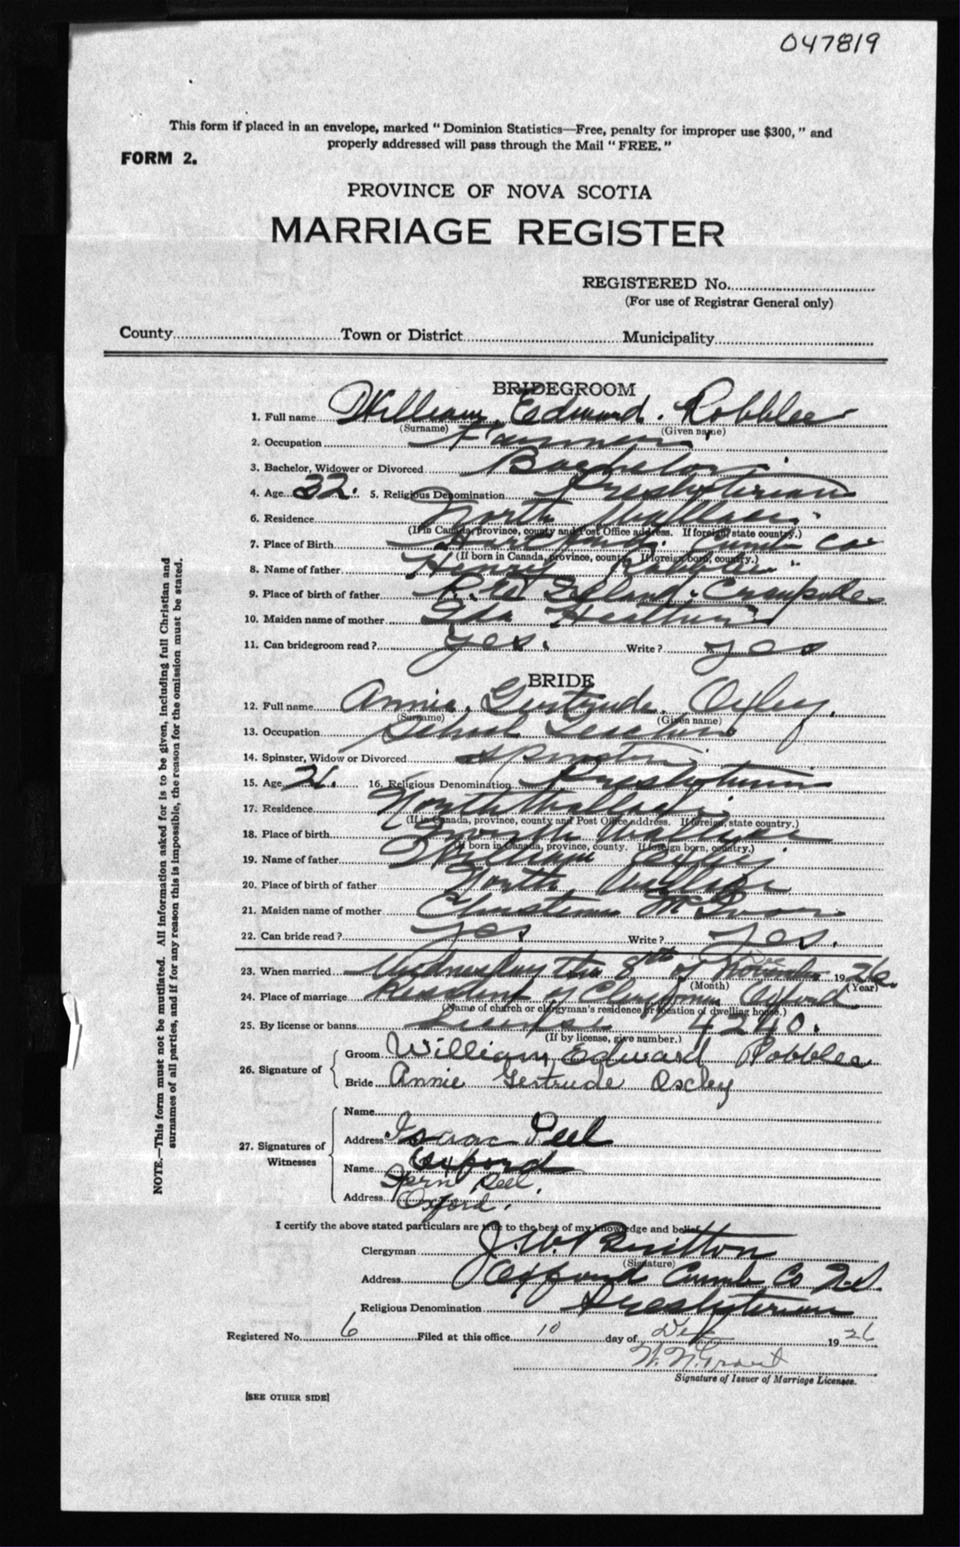 047819
This form if placed in an envelope, marked "Dominion Statistics—Free, penalty for improper use $300," and
properly addressed will pass through the Mail "FREE."
FORM 2.
PROVINCE OF NOVA SCOTIA
MARRIAGE REGISTER
REGISTERED No.
(For use of Registrar General only)
County Town or District Municipality
BRIDEGROOM
1. Full name William Edward Robblee
(Surname) (Given name)
2. Occupation Farmer
3. Bachelor, Widower or Divorced Bachelor
4. Age 32. 5. Religious Denomination Presbyterian
6. Residence North Wallace
(If in Canada, province, county and Post Office address. If foreign, state country.)
7. Place of Birth Cumb Co
(If born in Canada, province, county. If foreign born, country.)
8. Name of father Henry Robblee
9. Place of birth of father
10. Maiden name of mother Ida
11. Can bridegroom read? yes. Write? yes
BRIDE
12. Full name Annie Gertrude Oxley.
(Surname) (Given name)
13. Occupation School Teacher
14. Spinster, Widow or Divorced Spinster
15. Age 16. Religious Denomination Presbyterian
17. Residence North Wallace
(If in Canada, province, county and Post Office address. If foreign, state country.)
18. Place of birth North Wallace
(If born in Canada, province, county. If foreign born, country.)
19. Name of father Oxley
20. Place of birth of father North Wallace
21. Maiden name of mother Christena McIvor
22. Can bride read? yes Write? yes.
23. When married Wednesday the 8th of 1926.
(Month) (Year)
24. Place of marriage Resident of Clergyman Oxford
(Name of church or clergyman's residence or location of dwelling house.)
25. By license or banns License 4240.
(If by license, give number.)
26. Signature of Groom William Edward Robblee
Bride Annie Gertrude Oxley
27. Signatures of Witnesses
Name
Address Isaac Peel
Oxford
Name Fern Peel.
Address Oxford.
I certify the above stated particulars are true to the best of my knowledge and belief.
Clergyman J. W. Britton
(Signature)
Address Oxford Cumb Co N.S.
Religious Denomination Presbyterian
Registered No. 6 Filed at this office 10 day of Dec 1926
Signature of Issuer of Marriage Licenses.
[SEE OTHER SIDE]
NOTE.—This form must not be mutilated. All information asked for is to be given, including full Christian and
surnames of all parties, and if for any reason this is impossible, the reason for the omission must be stated.